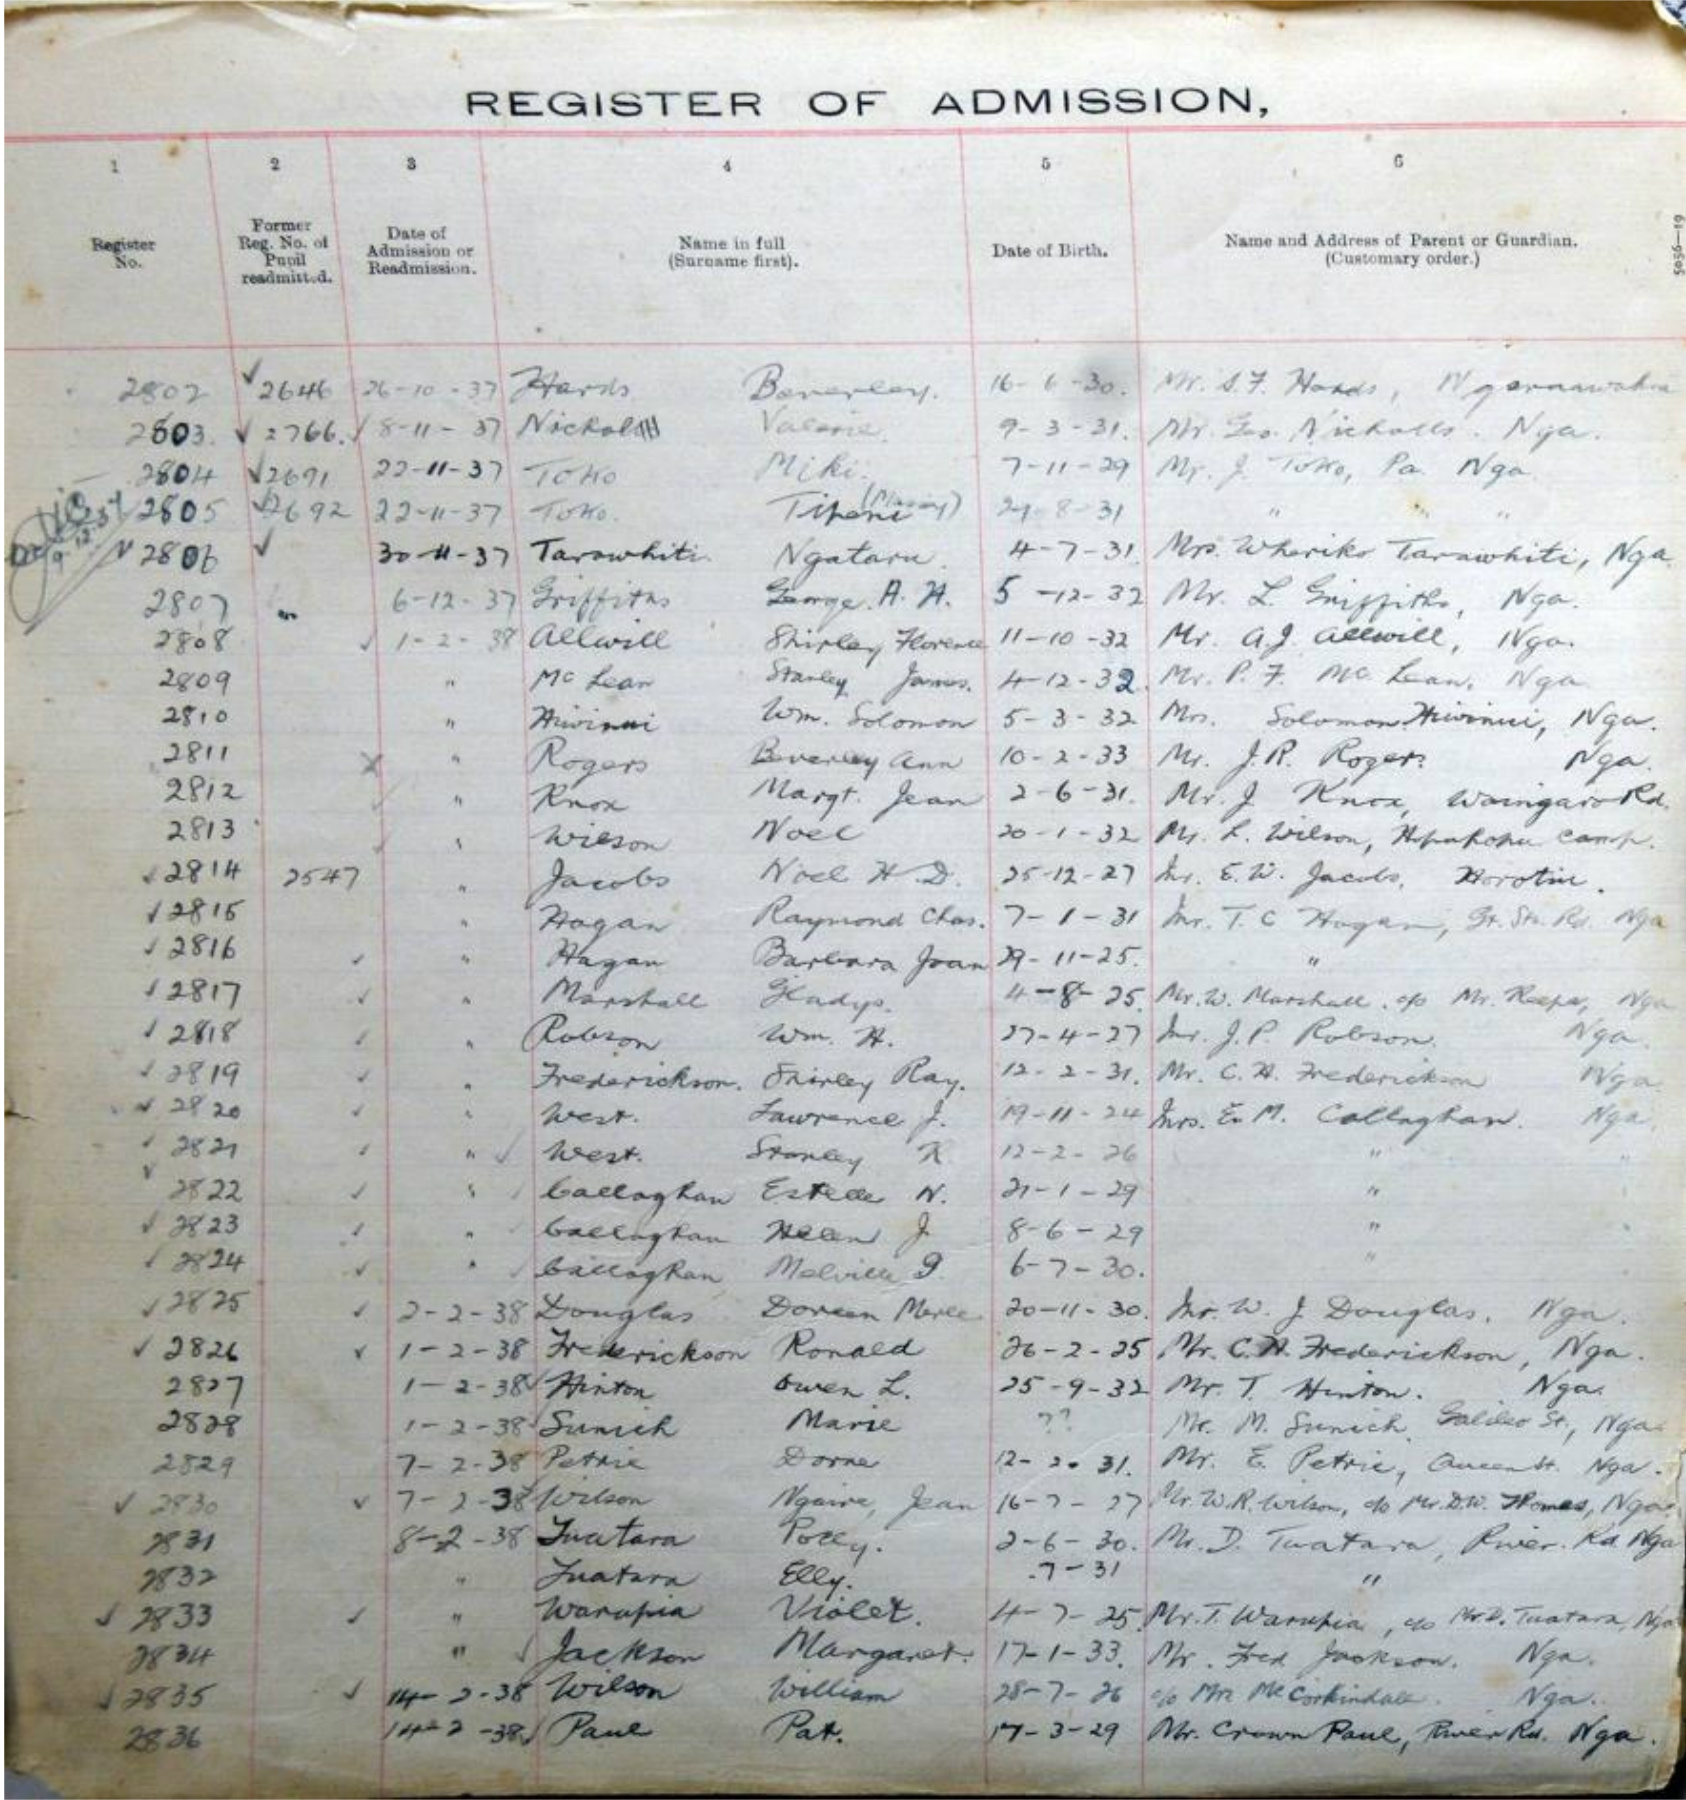 REGISTER OF ADMISSION,
1 2 3 4 5 6
Register No. Former Reg. No. of Pupil readmitted. Date of Admission or Readmission. Name in full (Surname first). Date of Birth. Name and Address of Parent or Guardian. (Customary order.)
5056—19
2802 ✓ 2646 26-10-37 Hards Beverley. 16-6-30. Mr. S.F. Hards, Ngaruawahia
2803. ✓ 2766. ✓ 8-11-37 Nicholls Valerie 9-3-31. Mr. Geo. Nicholls. Nga.
2804 ✓ 2691 22-11-37 Toko Miki. 7-11-29 Mr. J. Toko, Pa. Nga
2805 ✓ 2692 22-11-37 Toko. Tipene 8-31 " " "
9-12-37
2806 ✓ 30-11-37 Tarawhiti. Ngataru. 4-7-31 Mrs. Wheriko Tarawhiti, Nga
2807 " 6-12-37 Griffiths George A. H. 5-12-32 Mr. L. Griffiths, Nga.
2808 ✓ 1-2-38 Allwill Shirley Florence 11-10-32 Mr. A.J. Allwill, Nga.
2809 " McLean Stanley James. 4-12-32. Mr. P. F. McLean. Nga
2810 " Hiwinui Wm. Solomon 5-3-32 Mrs. Solomon Hiwinui, Nga.
2811 X " Rogers Beverley Ann 10-2-33 Mr. J.R. Rogers Nga.
2812 ✓ " Knox Margt. Jean 2-6-31. Mr. J Knox, Waingaro Rd.
2813 ✓ " Wilson Noel 20-1-32 Mr. L. Wilson, Hopuhopu Camp.
✓ 2814 2547 " Jacobs Noel H.D. 25-12-27 Mr. E.W. Jacobs, Horotiu.
✓ 2815 " Hagan Raymond Chas. 7-1-31 Mr. T. C Hagan, Gt. Sth. Rd. Nga
✓ 2816 ✓ " Hagan Barbara Joan 29-11-25. "
✓ 2817 ✓ " Marshall Gladys. 4-8-25. Mr. W. Marshall. c/o Mr. Nga
✓ 2818 ✓ " Robson Wm. H. 27-4-27 Mr. J.P. Robson. Nga
✓ 2819 ✓ " Frederickson. Shirley Ray. 12-2-31. Mr. C. H. Frederickson Nga
✓ 2820 ✓ " West. Lawrence J. 19-11-24 Mrs. E. M. Callaghan. Nga
✓ 2821 ✓ " ✓ West. Stanley 12-2-26 " "
✓ 2822 ✓ " Callaghan Estelle N. 21-1-29 " "
✓ 2823 ✓ " Callaghan Helen J 8-6-29 " "
✓ 2824 ✓ " Callaghan Melville 6-7-30. "
✓ 2825 ✓ 2-2-38 Douglas Doreen Merle 20-11-30. Mr. W. J Douglas. Nga.
✓ 2826 ✓ 1-2-38 Frederickson Ronald 26-2-25 Mr. C. H. Frederickson, Nga.
2827 1-2-38 ✓ Hinton Owen L. 25-9-32 Mr. T. Hinton. Nga.
2828 1-2-38 Sunich Marie ?? Mr. M. Sunich, Galileo St, Nga
2829 7-2-38 Petrie Dorne 12-2-31. Mr. E. Petrie, Queen St. Nga.
✓ 2830 ✓ 7-2-38 Wilson Ngaire, Jean 16-7-27 Mr. W.R. Wilson, c/o Mr. D.W. Thomas, Nga.
2831 8-2-38 Tuatara Polly. 2-6-30. Mr. D. Tuatara, River Rd Nga
2832 " Tuatara Elly. .7-31 "
✓ 2833 ✓ " Warupia Violet. 4-7-25. Mr. T. Warupia, c/o Mr. D. Tuatara, Nga
2834 " ✓ Jackson Margaret. 17-1-33. Mr. Fred Jackson. Nga.
✓ 2835 ✓ 14-2-38 Wilson William 28-7-26 c/o Mrs McCorkindale. Nga.
2836 14-2-38 ✓ Paul Pat. 17-3-29 Mr. Crown Paul, River Rd. Nga.